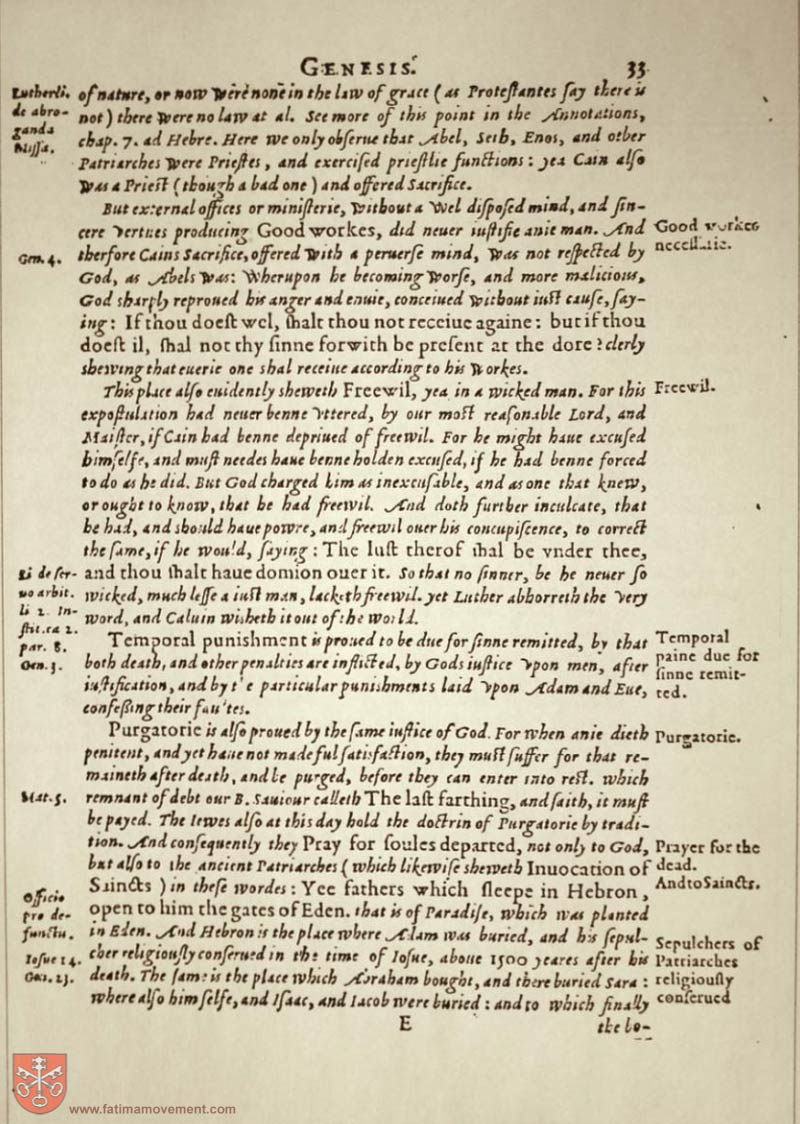 GENESIS.
33
Lutherli.
de abro-
ganda
Missa.
of nature, or now were none in the law of grace (as Protestantes say there is
not) there were no law at al. See more of this point in the Annotations,
chap. 7. ad Hebre. Here we only obserue that Abel, Seth, Enos, and other
Patriarches were Priestes, and exercised priestlie functions: yea Cain also
was a Priest (though a bad one) and offered Sacrifice.
But external offices or ministerie, without a wel disposed mind, and sin-
cere vertues producing Good workes, did neuer iustifie anie man. And
Good workes
necessarie.
therfore Cains Sacrifice, offered with a peruerse mind, was not respected by
Gen. 4.
God, as Abels was: wherupon he becoming worse, and more malicious,
God sharply reproued his anger and enuie, conceiued without iust cause, say-
ing: If thou doest wel, shalt thou not receiue againe: but if thou
doest il, shal not thy sinne forwith be present at the dore? clerly
shewing that euerie one shal receiue according to his workes.
This place also euidently sheweth Freewil, yea in a wicked man. For this
Freewil.
expostulation had neuer benne vttered, by our most reasonable Lord, and
Maister, if Cain had benne depriued of freewil. For he might haue excused
himselfe, and must needes haue benne holden excused, if he had benne forced
to do as he did. But God charged him as inexcusable, and as one that knew,
or ought to know, that he had freewil. And doth further inculcate, that
he had, and should haue powre, and freewil ouer his concupiscence, to correct
the same, if he would, saying: The lust therof shal be vnder thee,
and thou shalt haue domion ouer it. So that no sinner, be he neuer so
wicked, much lesse a iust man, lacketh freewil. yet Luther abhorreth the very
word, and Caluin wisheth it out of the world.
Li de ser-
uo arbit.
li 2. In-
stit. ca 2.
par. 8.
Gen. 3.
Temporal punishment is proued to be due for sinne remitted, by that
both death, and other penalties are inflicted, by Gods iustice vpon men, after
iustification, and by t'e particular punishments laid vpon Adam and Eue,
confessing their fau'tes.
Temporal
paine due for
sinne remit-
ted.
Purgatorie is also proued by the same iustice of God. For when anie dieth
Purgatorie.
penitent, and yet haue not made ful satisfaction, they must suffer for that re-
maineth after death, and be purged, before they can enter into rest. which
remnant of debt our B. Sauiour calleth The last farthing, and saith, it must
Mat. 5.
be payed. The Iewes also at this day hold the doctrin of Purgatorie by tradi-
tion. And consequently they Pray for soules departed, not only to God,
but also to the ancient Patriarches (which likewise sheweth Inuocation of
Saincts) in these wordes: Yee fathers which sleepe in Hebron,
Prayer for the
dead.
And to Saincts.
open to him the gates of Eden. that is of Paradise, which was planted
in Eden. And Hebron is the place where Adam was buried, and his sepul-
Officio
pro de-
functu.
cher religiously conserued in the time of Iosue, aboue 1500 yeares after his
death. The same is the place which Abraham bought, and there buried Sara:
where also himselfe, and Isaac, and Iacob were buried: and to which finally
Iosue 14.
Gen. 23.
Sepulchers of
Patriarches
religiously
conserued
E
the bo-
www.fatimamovement.com